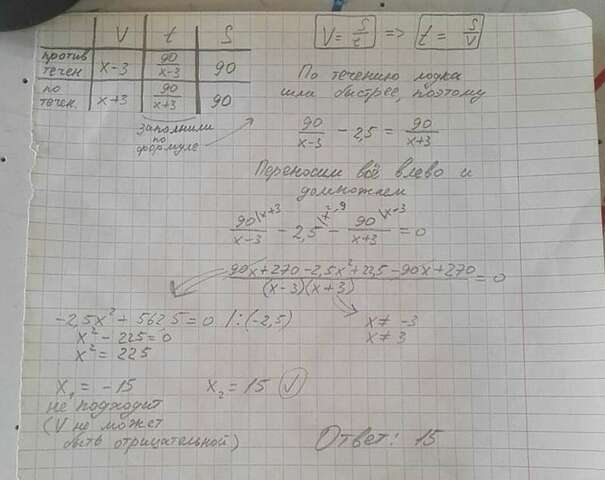 V t S
против течен x-3 90/(x-3) 90
по течен. x+3 90/(x+3) 90
заполнили
по
формуле
V = S/t => t = S/V
По течению лодка
шла быстрее, поэтому
90/(x-3) - 2,5 = 90/(x+3)
Переносим всё влево и
домножаем
90\x+3/(x-3) - 2,5\x²-9 - 90\x-3/(x+3) = 0
(90x+270-2,5x²+22,5-90x+270)/((x-3)(x+3)) = 0
-2,5x² + 562,5 = 0 /:(-2,5)
x ≠ -3
x² - 225 = 0
x ≠ 3
x² = 225
x₁ = -15 x₂ = 15 ✓
не подходит
(V не может
быть отрицательной)
Ответ: 15